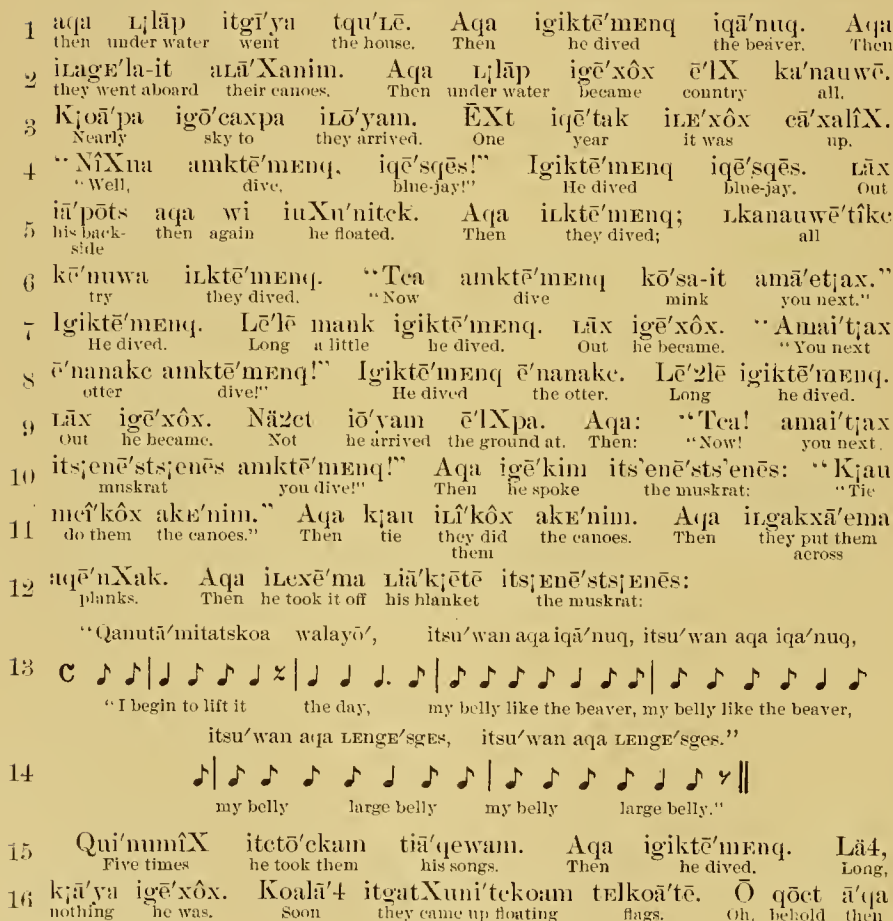 1 aqa ʟ¡lāp itgī′ya tqu′ʟē. Aqa igiktē′mᴇnq iqā′nuq. Aqa
then under water went the house. Then he dived the beaver. Then
2 iʟagᴇ′la-it aʟā′Xanim. Aqa ʟ¡lāp igē′xôx ē′lX ka′nauwē.
they went aboard their canoes. Then under water became country all.
3 K¡oā′pa igō′caxpa iʟō′yam. ĒXt iqē′tak iʟᴇ′xôx cā′xalîX.
Nearly sky to they arrived. One year it was up.
4 “NîXna amktē′mᴇnq, iqē′sqēs!” Igiktē′mᴇnq iqē′sqēs. ʟāx
“Well, dive, blue-jay!” He dived blue-jay. Out
5 iā′pōts aqa wi iuXu′nitck. Aqa iʟktē′mᴇnq; ʟkanauwē′tîkc
his back-side then again he floated. Then they dived; all
6 kē′nuwa iʟktē′mᴇnq. “Tca amktē′mᴇnq kō′sa-it amā′et¡ax.”
try they dived. “Now dive mink you next.”
7 Igiktē′mᴇnq. Lē′lē mank igiktē′mᴇnq. ʟāx igē′xôx. “Amai′t¡ax
He dived. Long a little he dived. Out he became. “You next
8 ē′nanakc amktē′mᴇnq!” Igiktē′mᴇnq ē′nanakc. Lē′2lē igiktē′mᴇnq.
otter dive!” He dived the otter. Long he dived.
9 ʟāx igē′xôx. Nä2ct iō′yam ē′lXpa. Aqa: “Tca! amai′t¡ax
Out he became. Not he arrived the ground at. Then: “Now! you next
10 its¡enē′sts¡enēs amktē′mᴇnq!” Aqa igē′kim its‛enē′sts‛enēs: “K¡au
muskrat you dive!” Then he spoke the muskrat: “Tie
11 mcî′kôx akᴇ′nim.” Aqa k¡au iʟî′kôx akᴇ′nim. Aqa iʟgakxā′ema
do them the canoes.” Then tie they did them the canoes. Then they put them across
12 aqē′nXak. Aqa iʟexē′ma ʟiā′k¡ētē its¡ᴇnē′sts¡ᴇnēs:
planks. Then he took it off his blanket the muskrat:
“Qanutā′mitatskoa walayō′, itsu′wan aqa iqā′nuq, itsu′wan aqa iqa′nuq,
13
“I begin to lift it the day, my belly like the beaver, my belly like the beaver,
itsu′wan aqa ʟᴇngᴇ′sgᴇs, itsu′wan aqa ʟᴇngᴇ′sges.”
14
my belly large belly my belly large belly.”
15 Qui′numîX itctō′ckam tiā′qewam. Aqa igiktē′mᴇnq. Lä4,
Five times he took them his songs. Then he dived. Long,
16 k¡ā′ya igē′xôx. Koalā′4 itgatXuni′tckoam tᴇlkoā′tē. Ō qōct ā′qa
nothing he was. Soon they came up floating flags. Oh, behold then